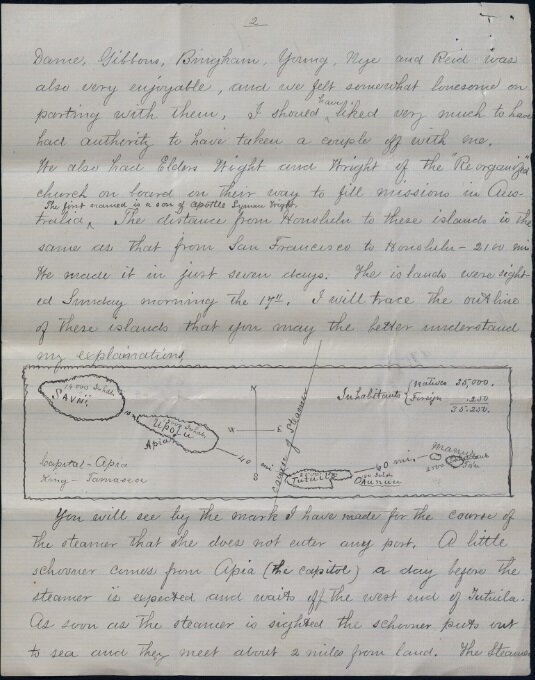 2
Dame, Gibbons, Bingham, Young, Nye and Reid was
also very enjoyable, and we felt somewhat lonesome on
parting with them, I should have liked very much to have
had authority to have taken a couple off with me.
We also had Elders Wight and Wright of the "Reorganized"
church on board on their way to fill missions in Aus-
The first named is a son of apostle Lyman Wight.
tralia. The distance from Honolulu to these islands is the
same as that from San Francisco to Honolulu - 2100 mi
We made it in just seven days. The islands were sight-
ed Sunday morning the 17". I will trace the outline
of these islands that you may the better understand
my explanations
14000 Inhab.
SAVAII
Inhab.
UPOLU
Apia
N
W E
S
40
course of Steamer
Inhabitants { Natives 35,000.
Foreign 250
35.250.
Capital - Apia
King - Tamasea
Tutuila
60 mi
Manua
You will see by the mark I have made for the course of
the steamer that she does not enter any port. A little
schooner comes from Apia (the capitol) a day before the
steamer is expected and waits off the west end of Tutuila.
As soon as the steamer is sighted the schooner puts out
to sea and they meet about 2 miles from land. The Steamer